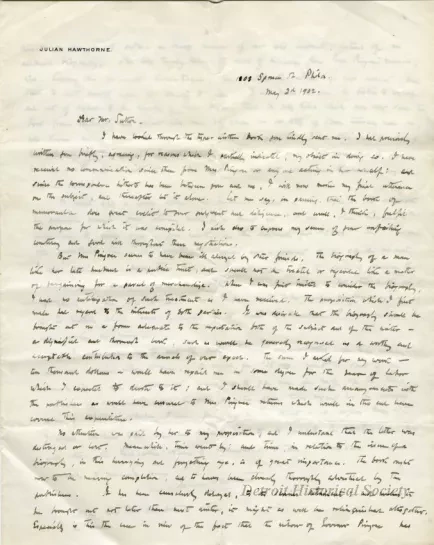 JULIAN HAWTHORNE.
Spruce St. Phila
May 2d 1902.
Dear Mr. Sutton.
I have looked through the type-written book you kindly sent me. I had previously
written you briefly, for reasons which I partially indicated, my object in doing so. I have
received no communication since then from Mrs Pingree or any one acting in her behalf: and
since the correspondence hitherto has been between you and me, I will now make my final
on the subject, and thereafter let it alone. Let me say, in passing, that the book of
memoranda does great credit to your judgment and diligence, and will, I think, fulfil
the purpose for which it was compiled. I wish also to express my sense of your unfailing
courtesy and good will throughout these negotiations.
But Mrs Pingree seems to have been ill advised by other friends. The biography of a man
like her late husband is a public trust, and should not be treated or regarded like a matter
of bargaining for a parcel of merchandise. When I was first invited to consider the biography,
I had no anticipation of such treatment as I have received. The proposition which I first
made had regard to the interests of both parties. It was desirable that the biography should be
brought out in a form adequate to the reputation both of the subject and of the writer -
a dignified and thorough work, such as would be generally recognized as a worthy and
acceptable contribution to the annals of our epoch. The sum I asked for my work -
ten thousand dollars - would have repaid me in some degree for the labor
which I expected to devote to it; and I should have made such arrangements with
the publishers as would have ensured to Mrs Pingree returns which would in the end have
covered this expenditure.
No attention was paid by her to my proposition, and I understand that the letter was
destroyed or lost. Meanwhile, time went by: and time, in relation to the issue of a
biography, in this hurrying and forgetting age, is of great importance. The book ought
now to be nearing completion, and to have been already thoroughly advertised by the
publishers. It has been needlessly delayed,
be brought out not later than next winter, it might as well be relinquished altogether.
Especially is this the case in view of the fact that the widow of Governor Pingree has
Detroit Historical Society